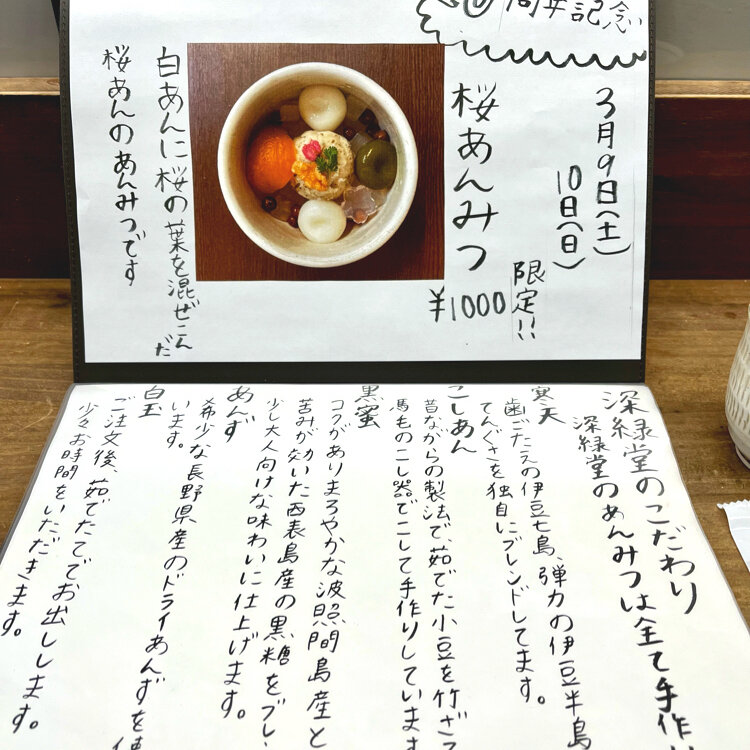 周年記念
3月9日(土)
10日(日)
限定!!
桜あんみつ
¥1000
白あんに桜の葉を混ぜこんだ
桜あんのあんみつです
深緑堂のこだわり
深緑堂のあんみつは全て手作
寒天
歯ごたえの伊豆七島、弾力の伊豆半島
てんぐさを独自にブレンドしてます。
こしあん
昔ながらの製法で、茹でた小豆を竹ざ
馬毛のこし器でこして手作りしています
黒蜜
コクがありまろやかな波照間島産と
苦みが効いた西表島産の黒糖をブレ
少し大人向けな味わいに仕上げます。
あんず
希少な長野県産のドライあんずを使
います。
白玉
ご注文後、茹でたてでお出しします。
少々お時間をいただきます。